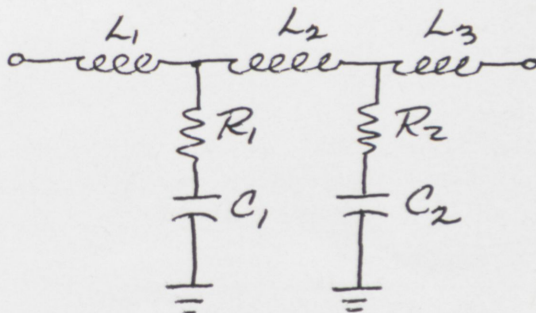 L1 L2 L3
R1 R2
C1 C2